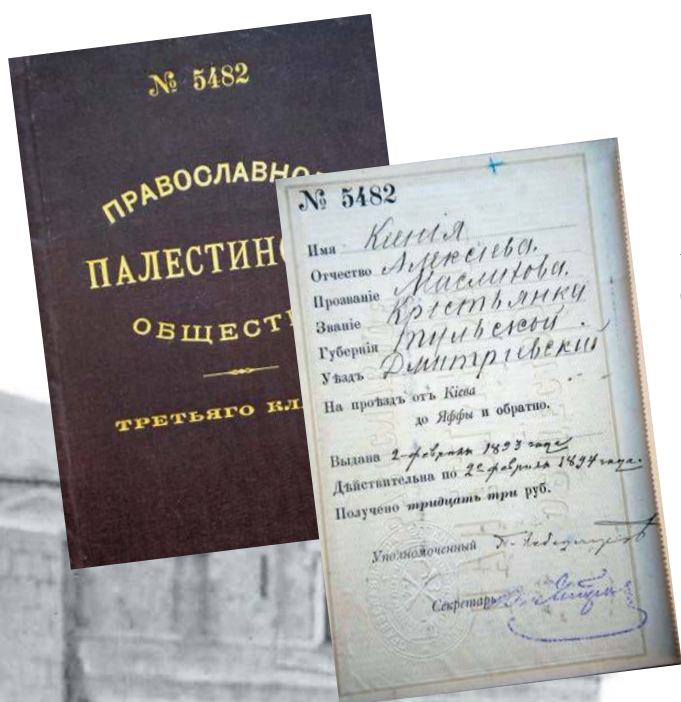 № 5482
ПРАВОСЛАВНО
ПАЛЕСТИН
ОБЩЕСТ
ТРЕТЬЯГО КЛ
№ 5482
Имя Ксенія
Отчество Алексіева.
Прозваніе Маслихова.
Званіе Крестьянку
Губернія Тульской.
Уѣздъ Дмитріевскій
На проѣздъ отъ Кіева
до Яффы и обратно.
Выдана 2 февраля 1893 года
Дѣйствительна по 2е февраля 1894 года.
Получено тридцать три руб.
Уполномоченный
Секретарь